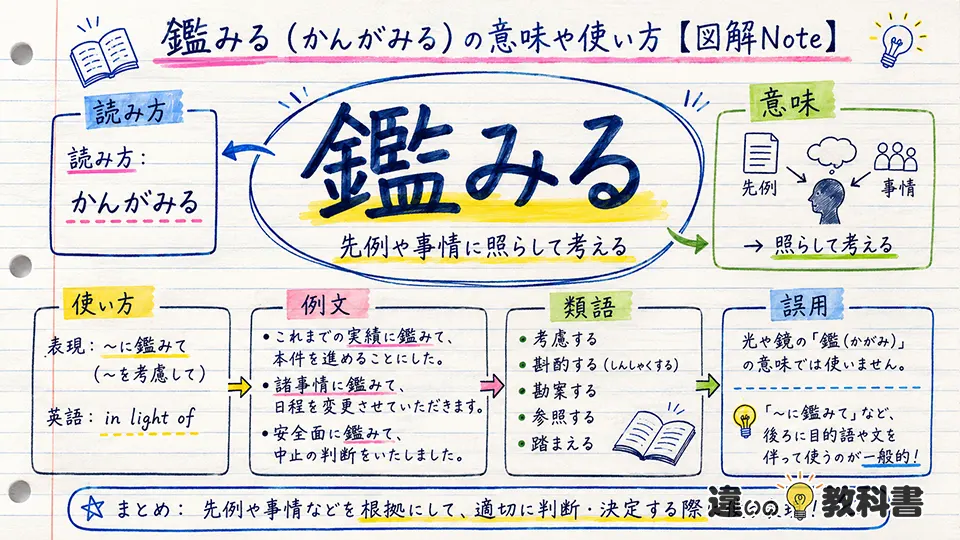 鑑みる（かんがみる）の意味や使い方【図解Note】
読み方
読み方：
かんがみる
鑑みる
先例や事情に照らして考える
意味
先例
事情
→ 照らして考える
使い方
表現：〜に鑑みて
（〜を考慮して）
英語：in light of
例文
•これまでの実績に鑑みて、
本件を進めることにした。
•諸事情に鑑みて、
日程を変更させていただきます。
•安全面に鑑みて、
中止の判断をいたしました。
類語
•考慮する
•斟酌する（しんしゃくする）
•勘案する
•参照する
•踏まえる
誤用
光や鏡の「鑑（かがみ）」
の意味では使いません。
「〜に鑑みて」など、
後ろに目的語や文を
伴って使うのが一般的！
まとめ： 先例や事情などを根拠にして、適切に判断・決定する際
違いの教科書